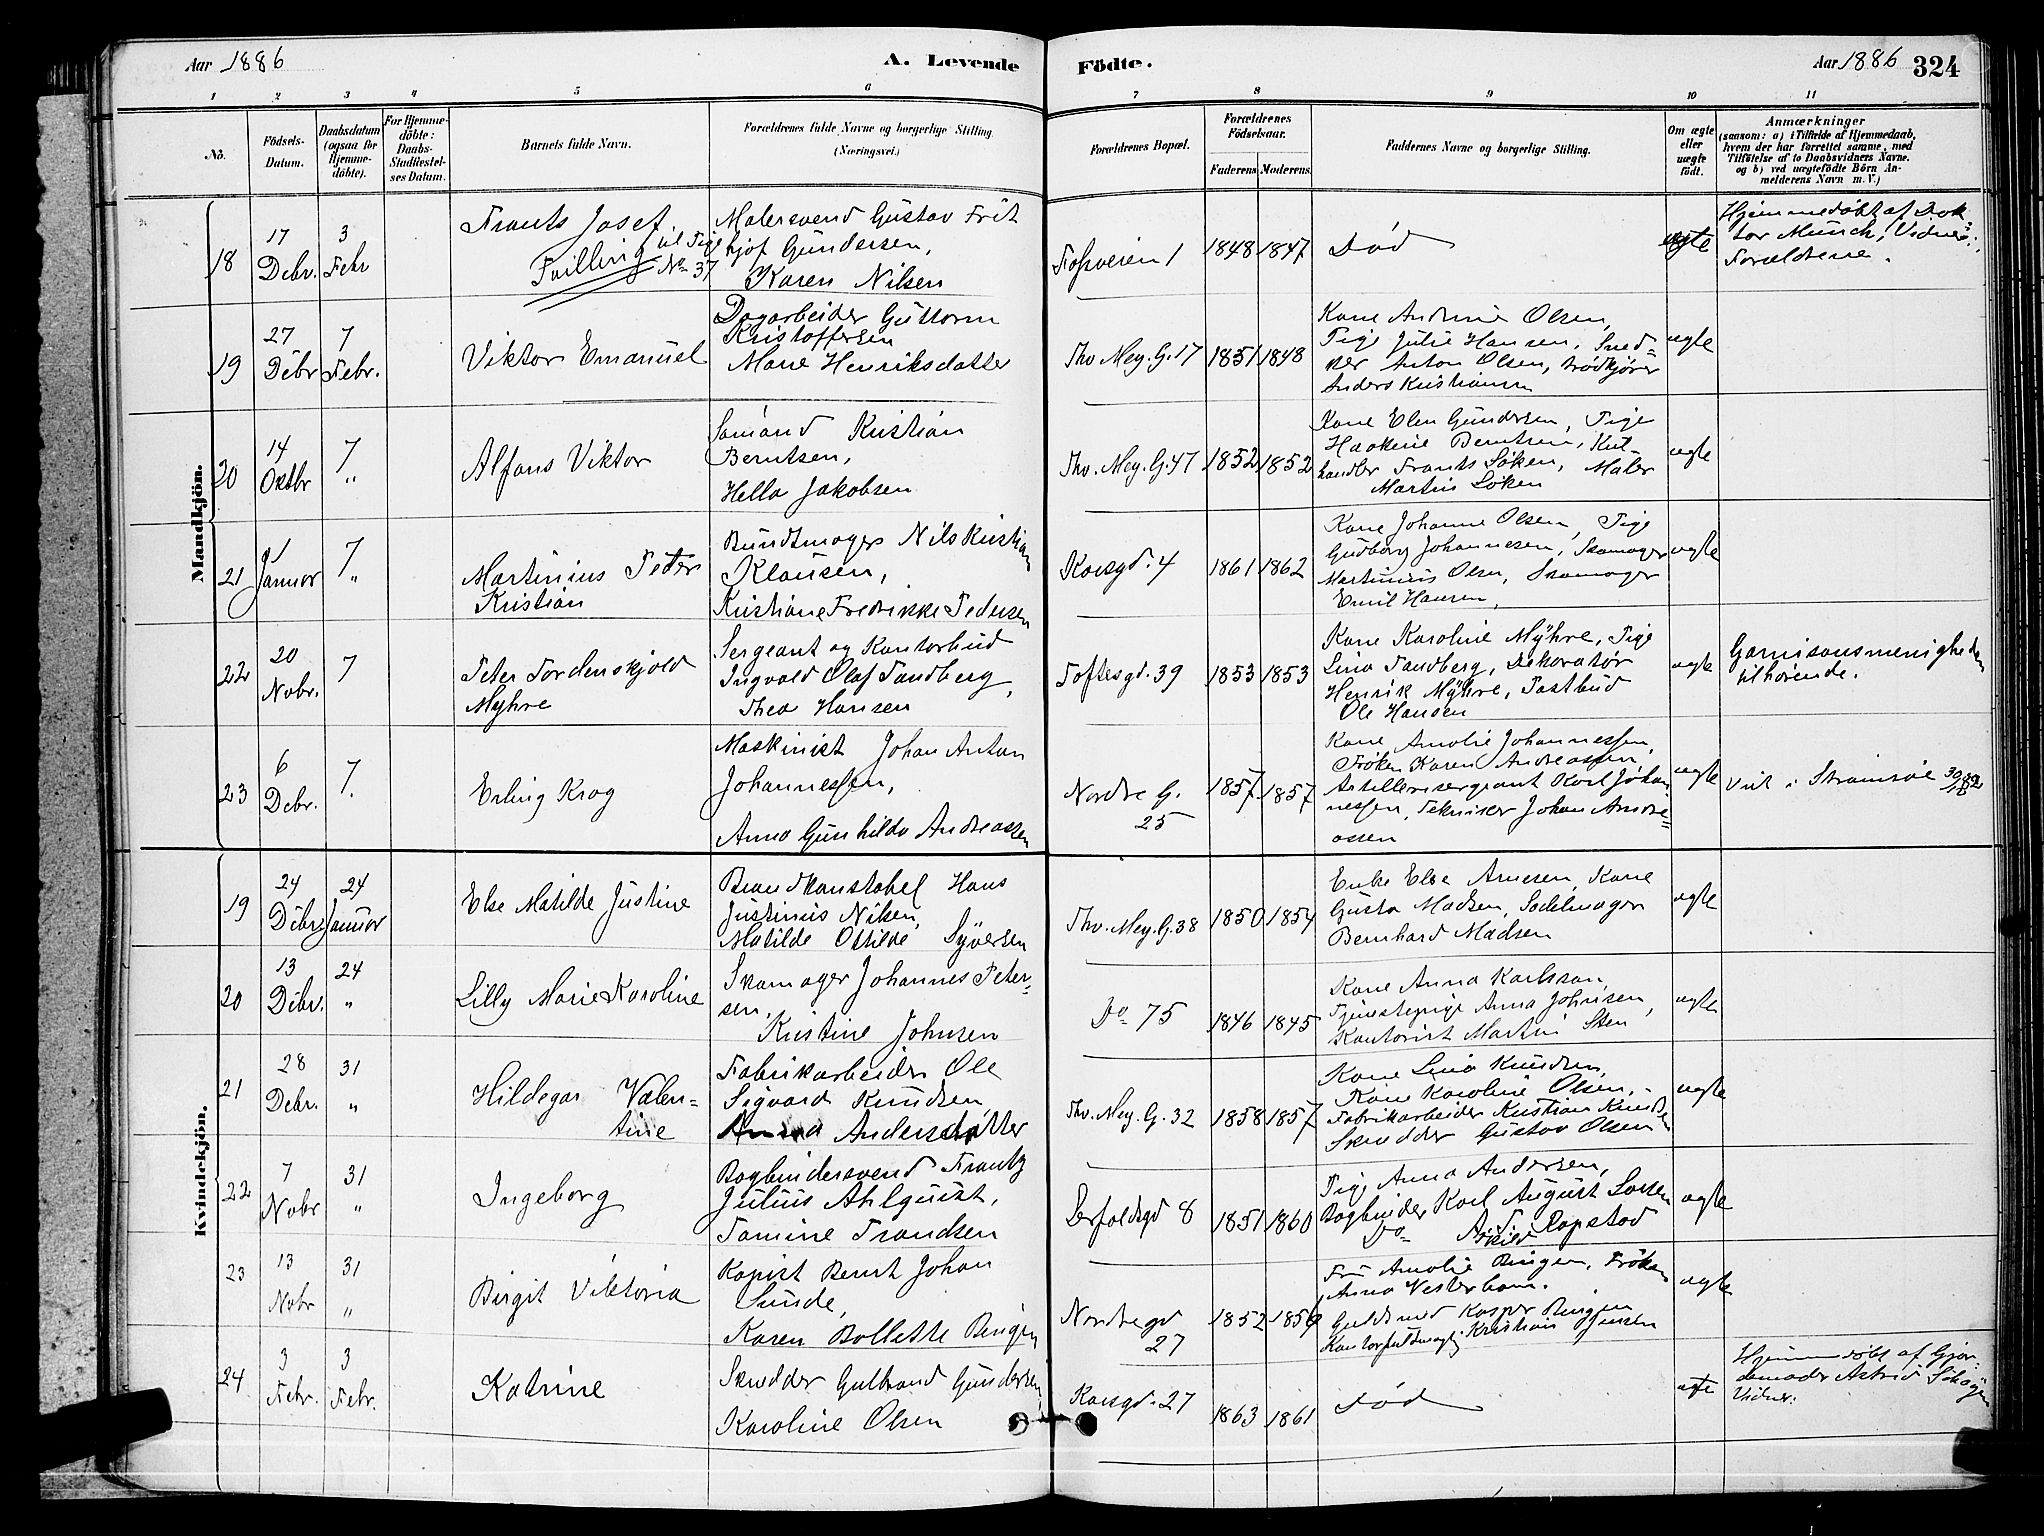 Aar 1886
A. Levende
Födte.
Aar 1886
324
1 2 3 4 5 6 7 8 9 10 11
No.
Födsels-
Datum.
Daabsdatum
(ogsaa for
Hjemme-
döbte).
For Hjemme-
döbte:
Daabs-
Stadfæstel-
ses Datum.
Barnets fulde Navn.
Forældrenes fulde Navne og borgerlige Stilling.
(Næringsvei.)
Forældrenes Bopæl.
Forældrenes
Födselsaar.
Faderens. Moderens.
Faddernes Navne og borgerlige Stilling.
Om ægte
eller
uægte
födt.
Anmærkninger
(saasom: a) i Tilfælde af Hjemmedaab,
hvem der har forrettet samme, med
Tilföielse af to Daabsvidners Navne.
og b) ved uægtefödte Börn An-
melderens Navn m. V.)
Mandkjön.
18
17
Debr.
3
Febr
Frants Josef
Tvilling til Pige
No 37
Malersvend Gustav Frit
hjof Gundersen,
Karen Nilsen
Fossveien 1
1848
1847
Død
ægte
Hjemmedøbt af Dok
tor Munch, Vidner:
Forældrene.
19
27
Debr
7
Febr.
Viktor Emanuel
Dagarbeider Guttorm
Kristoffersen
Marie Henriksdatter
Thv. Mey. G. 17
1851
1848
Kone Andrine Olsen,
Pige Julie Hansen, Sned-
ker Anton Olsen, Brødkjører
Anders Kristiansen
ægte
20
14
Oktbr
7
"
Alfons Viktor
Sømand Kristian
Berntsen,
Hella Jakobsen
Thv. Mey. G. 47
1852
1852
Kone Elen Gundersen, Pige
Haakine Berntsen, Kul-
handler Frants Løken, Maler
Martin Løken
ægte
21
1
Januar
7
"
Martinius Peder
Kristian
Bundtmager Nils Kristian
Klausen,
Kristiane Fredrikke Pedersen
Korsgd. 4
1861
1862
Kone Johanne Olsen, Pige
Gudborg Johannesen, Skomager
Martinius Olsen, Skomager
Emil Hansen,
ægte
22
20
Nobr.
7
Peter Tordenskjold
Myhre
Sergeant og Kontorbud
Ingvald Olaf Sandberg,
Thea Hansen
Toftesgd. 39
1853
1853
Kone Karoline Myhre, Pige
Lina Sandberg, Dekoratør
Henrik Myhre, Postbud
Ole Hansen
ægte
Garnisonsmenigheden
tilhørende.
23
6
Debr.
7
Erling Krog
Maskinist Johan Anton
Johannessen,
Anna Gunhilda Andreassen
Nordre G.
25
1857
1857
Kone Amalie Johannessen,
Frøken Karen Andreassen
Artillerisergeant Karl Johan
nessen, Tekniker Johan Andre-
assen
ægte
Kvindekjön.
19
24
Debr.
24
Januar
Else Matilde Justine
Brandkonstabel Hans
Justinus Nilsen,
Matilde Ottilde Syversen
Thv. Mey. G. 38
1850
1854
Enke Else Arnesen, Kone
Gusta Madsen, Sadelmager
Bernhard Madsen
ægte
20
13
Debr.
24
"
Lilly Marie Karoline
Skomager Johannes Peter-
sen,
Kristine Johnsen
Do 75
1846
1845
Kone Anna Karlsson,
Tjenestepige Anna Johnsen,
Kontorist Martin Sten
ægte
21
28
Debr.
31
"
Hildegar Valen-
tine
Fabrikarbeider Ole
Sigvard Knudsen,
Anna Andersdatter
Thv. Mey. G. 32
1858
1857
Kone Lina Knudsen,
Kone Karoline Olsen,
Fabrikarbeider Kristian Knudsen
Skrædder Gustav Olsen
ægte
22
7
Nobr
31
"
Ingeborg
Bogbindersvend Frantz
Julius Ahlquist,
Tomine Trondsen
Herfoldsgd 8
1851
1860
Pige Anna Andersen,
Bogbinder Karl August Larsen
Do Ropstad
ægte
23
13
Nobr
31
"
Birgit Viktoria
Kopist Bernt Johan
Sunde,
Karen Bollette Bingen
Nordregd
27
1852
1856
Fru Amalie Bingen, Frøken
Anna Vesterhom.
Guldsmed Kasper Bingen
Kontorfuldmægtig Kristian Jensen
ægte
24
3
Febr.
3
Febr.
Katrine
Skrædder Gulbrand Gundersen,
Karoline Olsen
Korsgd. 27
1863
1861
Død
ægte
Hjemmedøbt af Gjor-
demoder Astrid
Vidner.